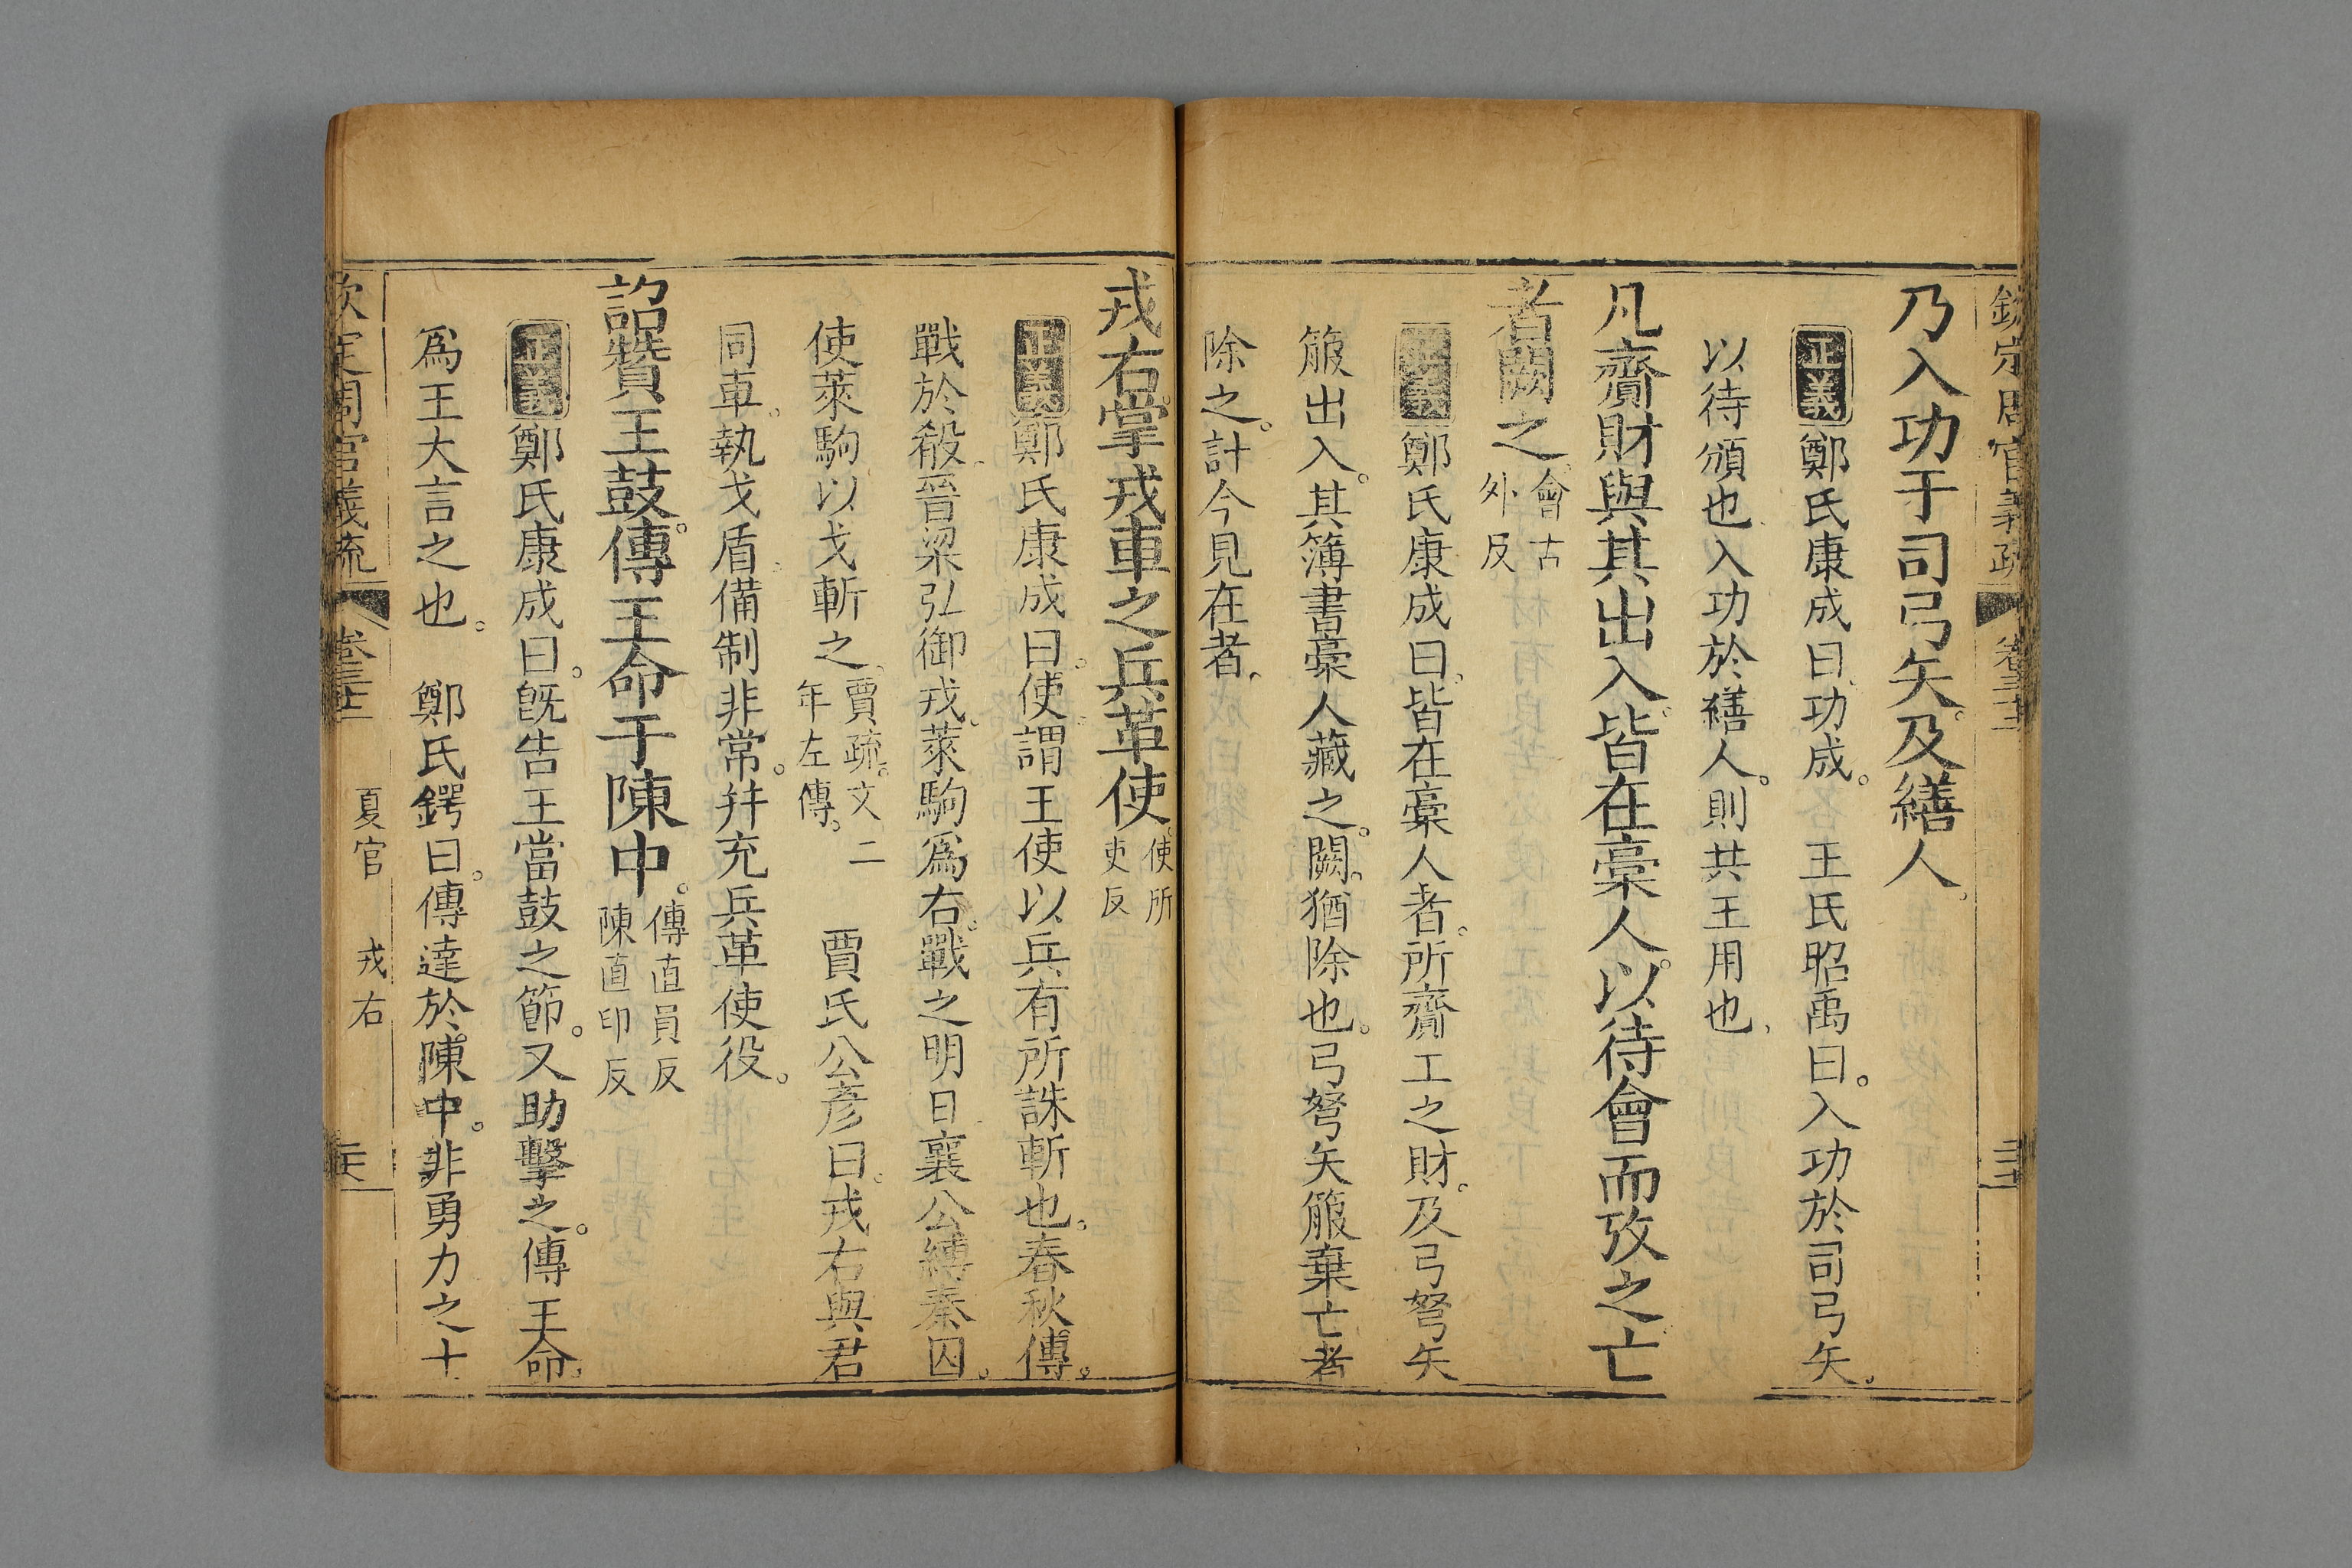 欽定周官義疏 卷三十二
乃入功于司弓矢及繕人。
正義鄭氏康成曰功成。 王氏昭禹曰。入功於司弓矢。
以待頒也入功於繕人。則共王用也
凡齎財與其出入皆在稾人以待會而攷之亡
者闕之會古外反
正義鄭氏康成曰。皆在稾人者。所齎工之財。及弓弩矢
箙出入。其簿書稾人藏之。闕。猶除也。弓弩矢箙棄亡者
除之。計今見在者。
戎右掌戎車之兵革使使所吏反
正義鄭氏康成曰。使謂王使以兵有所誅斬也。春秋傳。
戰於殽。晉梁弘御戎。萊駒爲右。戰之明日。襄公縛秦囚。
使萊駒以戈斬之。賈疏。文二年左傳。 賈氏公彥曰。戎右與君
同車。執戈盾。備制非常。幷充兵革使役。
詔贊王鼓。傳王命于陳中。傳直員反陳直印反
正義鄭氏康成曰。旣告王當鼓之節。又助擊之。傳王命。
爲王大言之也。 鄭氏鍔曰。傳達於陳中。非勇力之士
欽定周官義疏 卷三十二 夏官 戎右